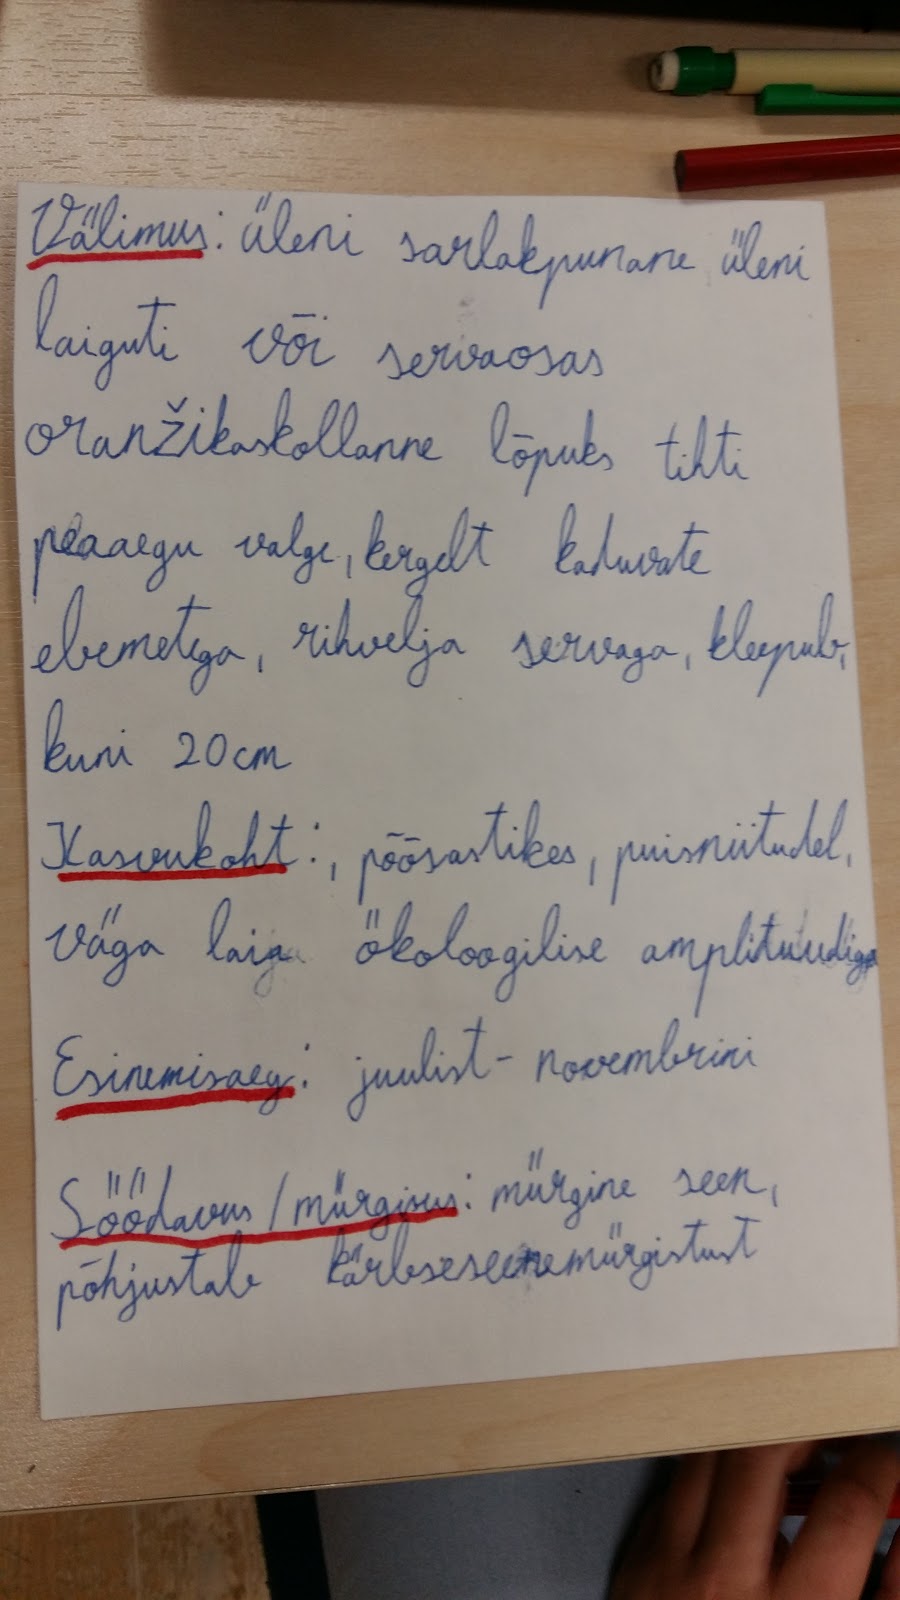 Välimus: üleni sarlakpunane üleni
laiguti või servaosas
oranžikaskollanne lõpuks tihti
peaaegu valge, kergelt kaduvate
ebemetega, rihvelja servaga, kleepuv,
kuni 20cm
Kasvukoht:, põõsastikes, puisniitudel,
väga laiga ökoloogilise amplituudiga
Esinemisaeg: juulist- novembrini
Söödavus/mürgisus: mürgine seen,
põhjustab kärbseseenemürgistust